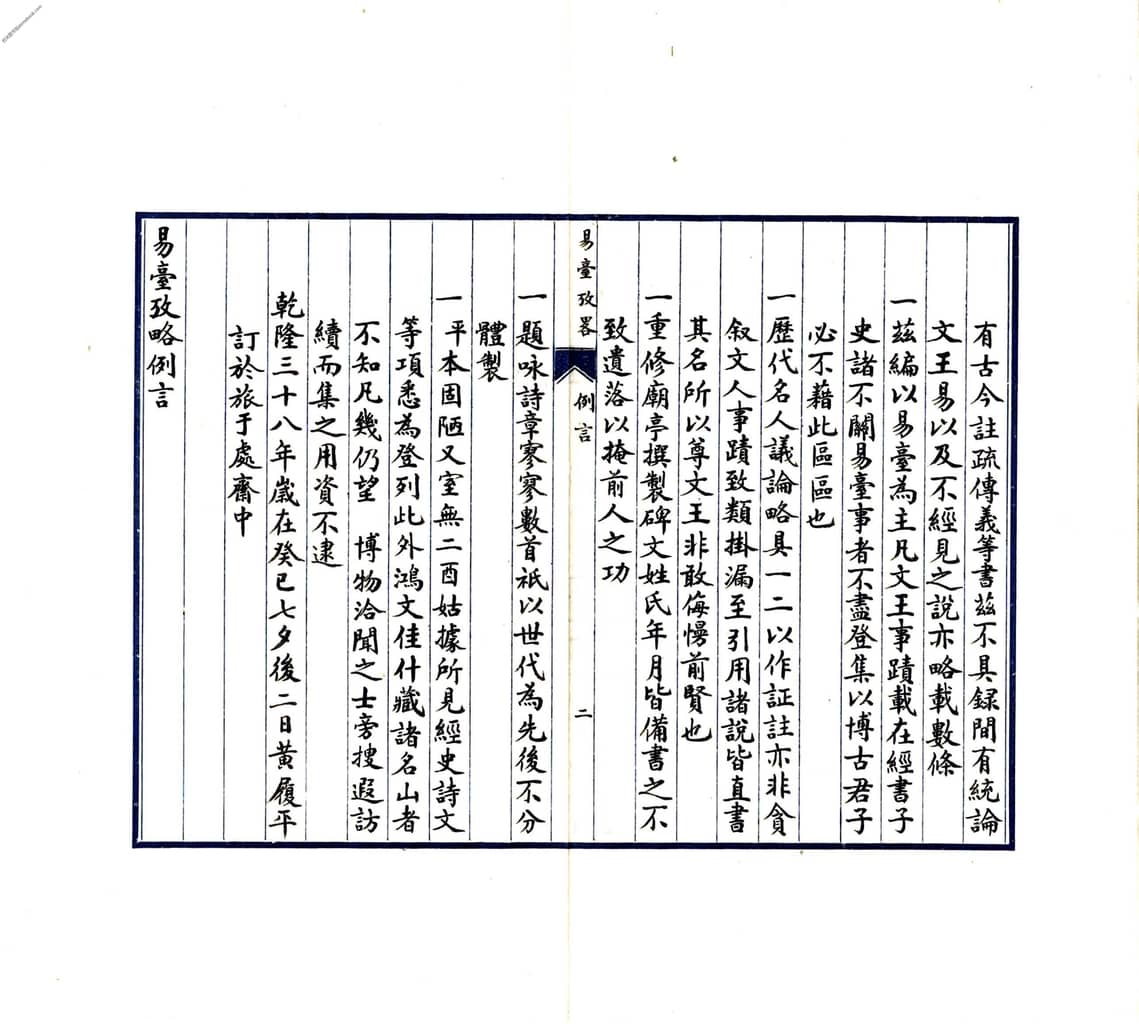 有古今註疏傳義等書茲不具録間有統論
文王易以及不經見之說亦略載數條
一茲編以易臺為主凡文王事蹟載在經書子
史諸不關易臺事者不盡登集以博古君子
必不藉此區區也
一歷代名人議論略具一二以作証註亦非貪
叙文人事蹟致類掛漏至引用諸說皆直書
其名所以尊文王非敢侮慢前賢也
一重修廟亭撰製碑文姓氏年月皆備書之不
致遺落以掩前人之功
易臺攷畧
例言
二
一題咏詩章寥寥數首祇以世代為先後不分
體製
一平本固陋又室無二酉姑據所見經史詩文
等項悉為登列此外鴻文佳什藏諸名山者
不知凡幾仍望 博物洽聞之士旁搜遐訪
續而集之用資不逮
乾隆三十八年嵗在癸巳七夕後二日黃履平
訂於旅于處齋中
易臺攷略例言